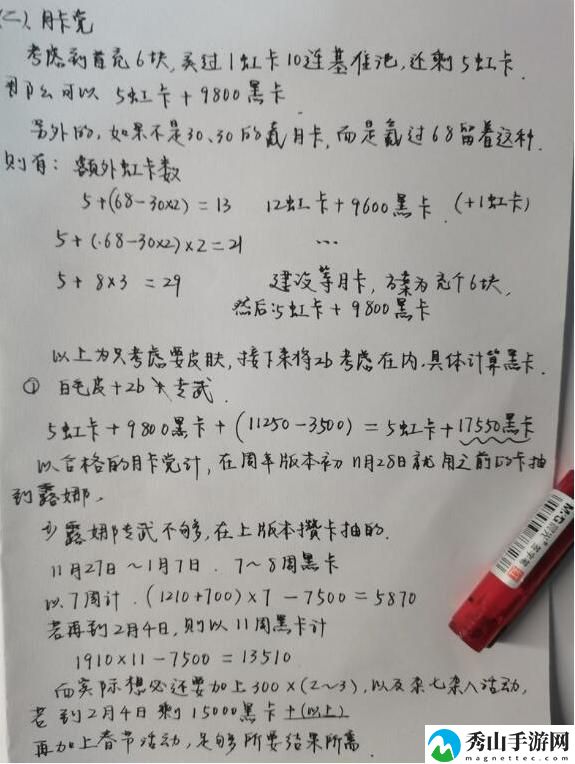 (二)、月卡党
考虑到首充6块,买过1虹卡10连基准池,还剩5虹卡.
那么可以 5虹卡+9800黑卡
另外的,如果不是30、30的氪月卡,而是氪过68留着这种.
则有: 额外虹卡数
5+(68-30×2)=13 12虹卡+9600黑卡 (+1虹卡)
5+(68-30×2)×2=21 ...
5+8×3 =29 建议等月卡,方案为充个6块,
然后:5虹卡+9800黑卡
以上为只考虑要皮肤,接下来将2b考虑在内,具体计算黑卡.
① 白毛皮+2b 专武.
5虹卡+9800黑卡+(11250-3500)=5虹卡+17550黑卡
以合格的月卡党计,在周年版本初11月28日就用之前的卡抽
到露娜,
露娜专武不够,在上版本攒卡抽的.
11月27日~1月7日. 7~8周黑卡
以7周计.(1210+700)×7-7500=5870
若再到2月4日,则以11周黑卡计
1910×11-7500=13510
而实际想必还要加上300×(2~3),以及杂七杂八活动,
若到2月4日剩15000黑卡+(以上)
再加上春节活动,足够所要结果所需.
M&G
秀山手游网
magnettec.com